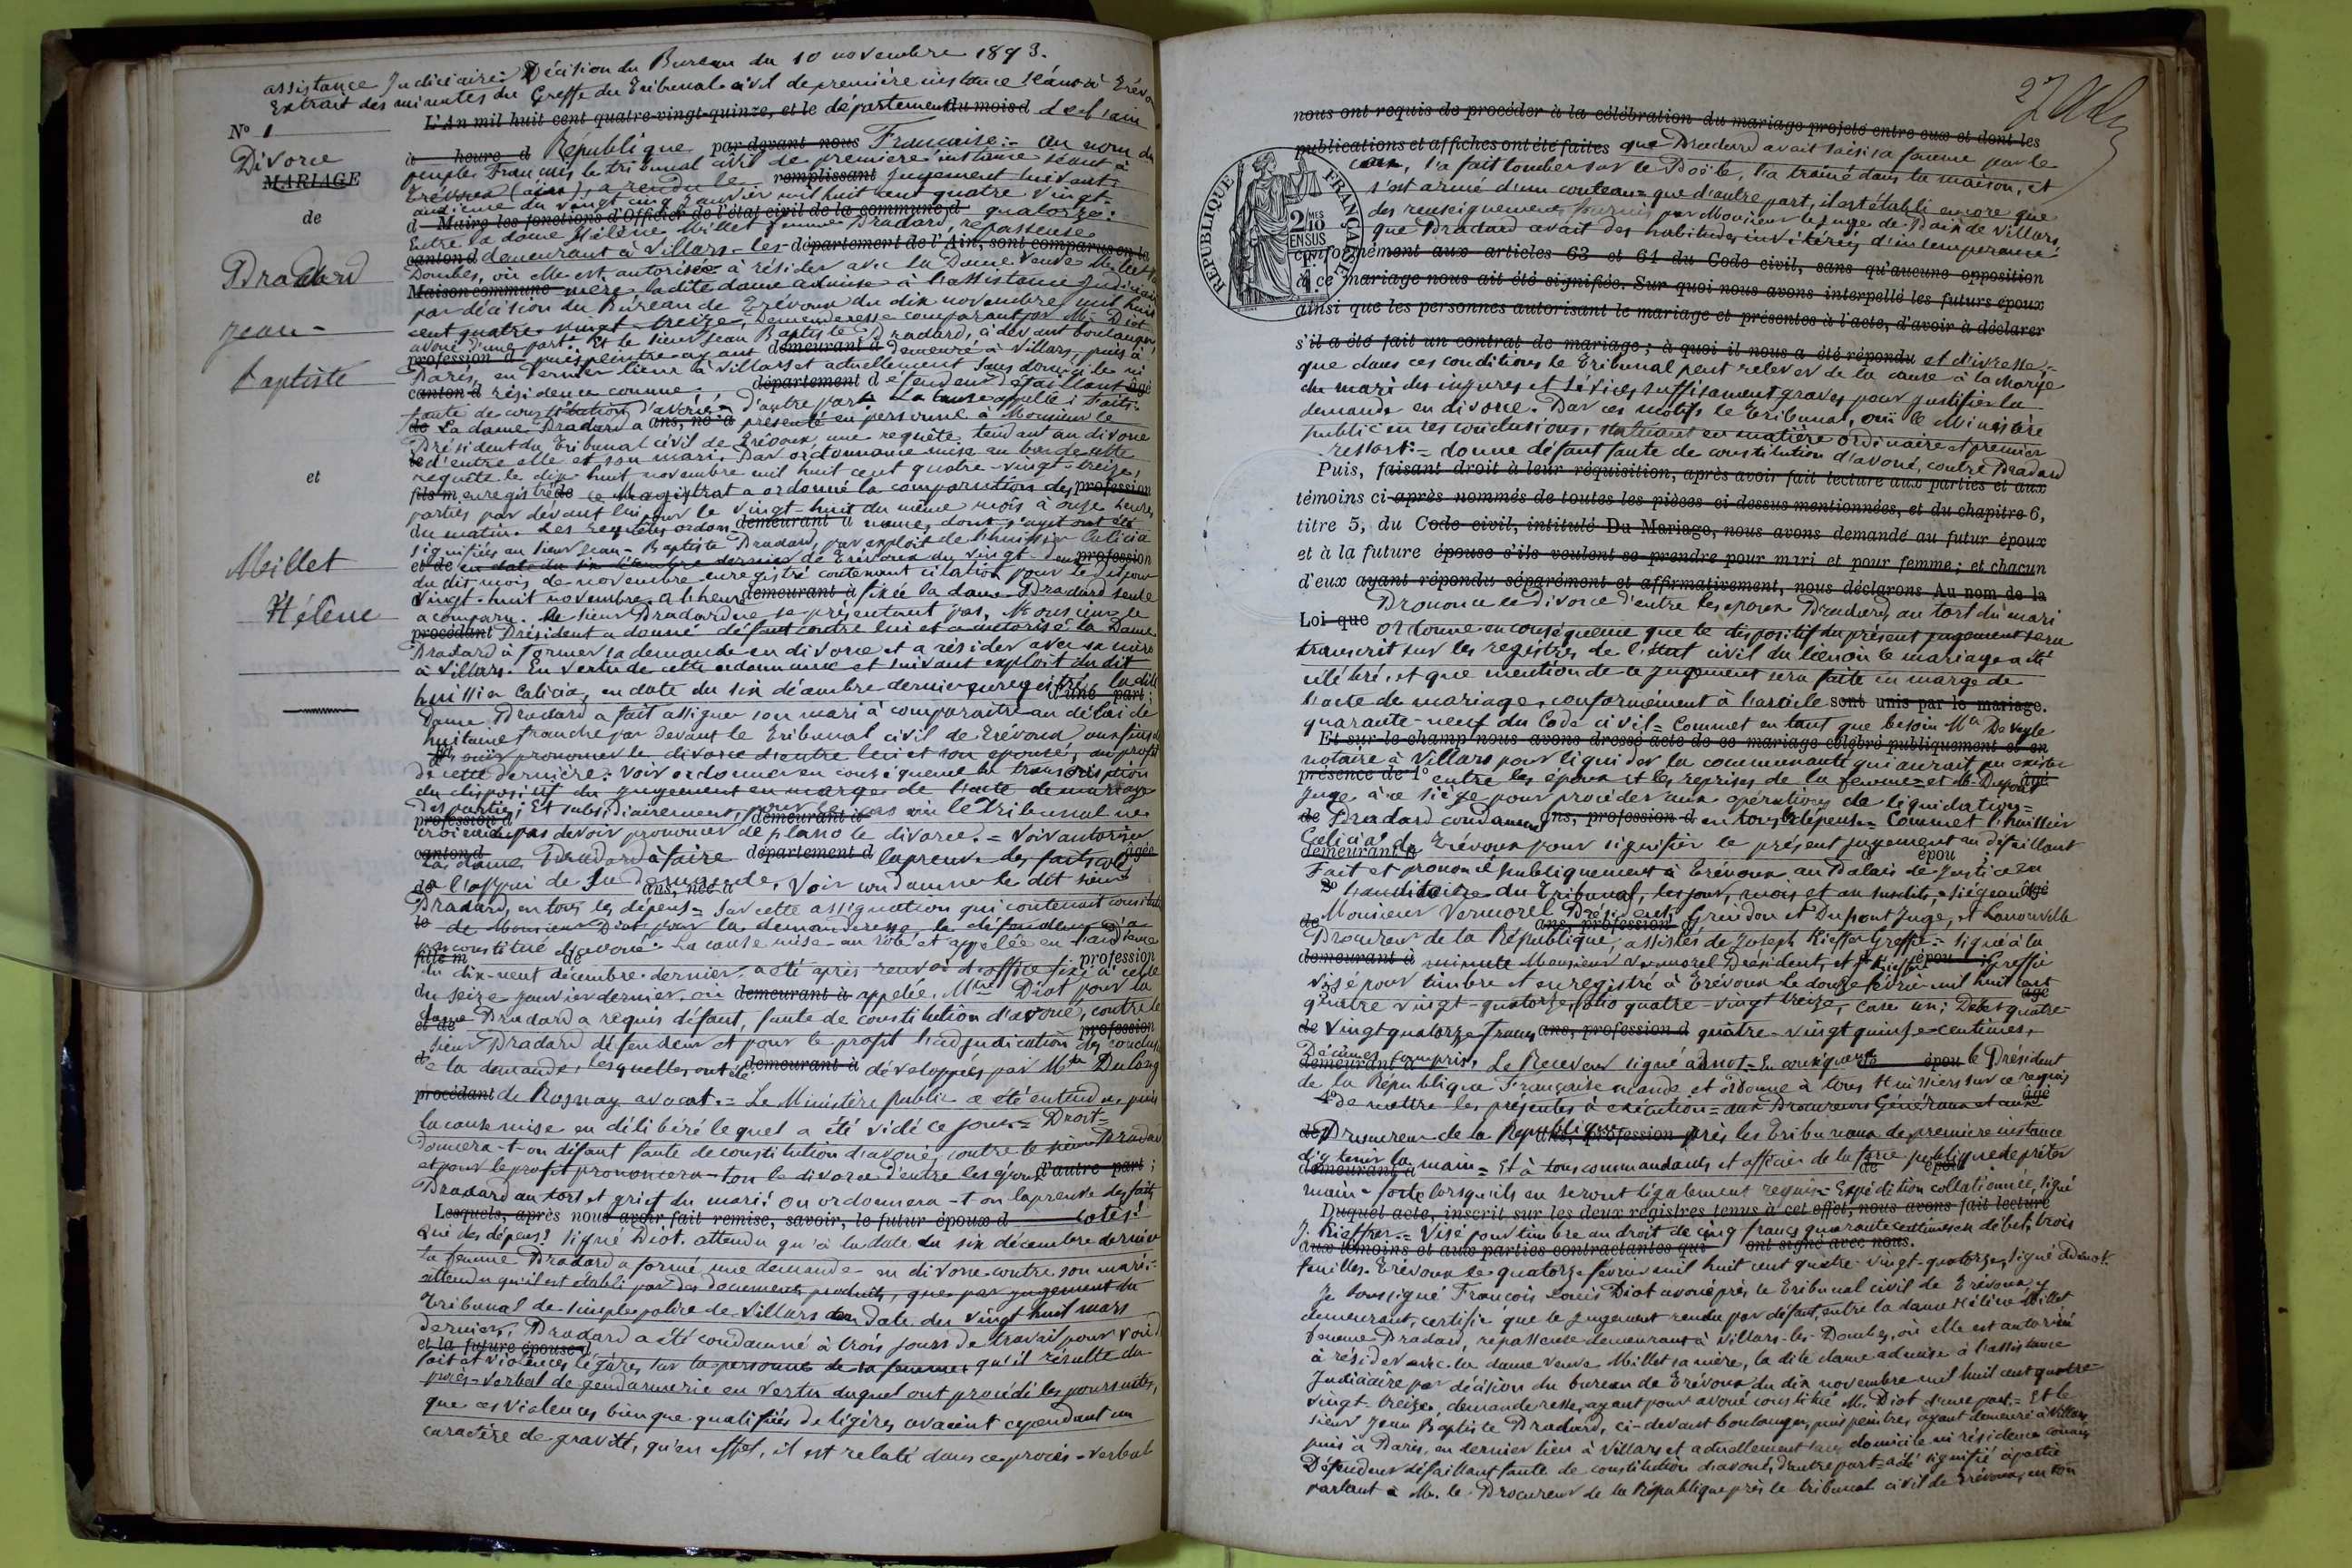 assistance Judiciaire: Décision du Bureau du 10 novembre 1893.
Extrait des minutes du Greffe du Tribunal civil de première instance séant à Trévoux
L'An mil huit cent quatre-vingt-quinze, et le département du mois d de l'ain
N° 1
Divorce
MARIAGE
de
Pradard
jean-
baptiste
et
Millet
Hélène
à heure d République par-devant nous Française:- au nom du
peuple Français le tribunal civil de première instance séant à
Trévoux (ain), a rendu le remplissant jugement suivant:
audience du vingt cinq janvier mil huit cent quatre vingt-
d Maire les fonctions d'Officier de l'état civil de la commune d quatorze:
Entre la dame Hélène Millet femme Pradard, repasseuse
canton d demeurant à Villars-les-département de l'Ain, sont comparus en la
Dombes, où elle est autorisée à résider avec la Dame veuve Millet sa
Maison commune mère ladite dame admise à l'assistance judiciaire
par décision du Bureau de Trévoux du dix novembre mil huit
cent quatre-vingt-treize, Demanderesse comparant par Me Diot
avoué d'une part: Et le sieur Jean Baptiste Pradard, ci-devant boulanger,
profession d puis peintre ayant demeurant à demeuré à Villars, puis à
Paris, en dernier lieu à Villars et actuellement sans domicile ni
canton d résidence connue, département d défendeur défaillant âgé
faute de constitution d'avoué d'autre part. La cause appelée: Faits:
de La dame Pradard a ans, né à présenté en personne à Monsieur le
Président du Tribunal civil de Trévoux une requête tendant au divorce
le d'entre elle et son mari. Par ordonnance mise au bas de cette
requête le dix-huit novembre mil huit cent quatre-vingt-treize,
fils m enregistrée de ce Magistrat a ordonné la comparution des profession
parties par devant lui pour le vingt-huit du même mois à onze heures
du matin. Les requêtes ordon demeurant à nance, dont s'agit ont été
signifiées au sieur Jean-Baptiste Pradard, par exploit de l'huissier Calicia
et de en date du six décembre dernier de Trévoux du vingt-deux profession
du dit mois de novembre enregistré contenant citation pour le dit jour
vingt-huit novembre. A l'heure demeurant à fixée la dame Pradard seule
a comparu. Le sieur Pradard ne se présentant pas, Monsieur le
procédant Président a donné défaut contre lui et a autorisé la Dame
Pradard à former sa demande en divorce et a résider avec sa mère
à Villars. En vertu de cette ordonnance et suivant exploit du dit
huissier Calicia, en date du six décembre dernier enregistré, la dite
d'une part;
Dame Pradard a fait assigner son mari à comparaître au délai de
huitaine franche par devant le Tribunal civil de Trévoux aux fins de
Et ouïr prononcer le divorce d'entre lui et son épouse, au profit
de cette dernière: Voir ordonner en conséquence la transcription
du dispositif du jugement en marge de l'acte de mariage
des parties; Et subsidiairement, pour le cas où le Tribunal ne
profession d demeurant à
croirait pas devoir prononcer de plano le divorce. = Voir autoriser
canton d la dame Pradard à faire département d la preuve des faits âgée
de à l'appui de sa demande, ans, née à Voir condamner le dit sieur
Pradard, en tous les dépens = Sur cette assignation qui contenait constitution
le de Monsieur Diot pour la demanderesse, le défendeur n'a
pas constitué d'avoué. La cause mise au rôle et appelée en l'audience
fille m de profession
du dix-neuf décembre dernier, a été après renvoi d'office fixé à celle
du seize janvier dernier, où demeurant à appelée, Mtre Diot pour la
dame Pradard a requis défaut, faute de constitution d'avoué, contre le
et de profession
sieur Pradard défendeur et pour le profit l'adjudication des conclusions
de la demande, lesquelles ont été demeurant à développées par Mtre Dulong
procédant de Rosnay avocat. = Le Ministère public a été entendu, puis
la cause mise en délibéré lequel a été vidé ce jour. = Droit =
Donnera-t-on défaut faute de constitution d'avoué, contre le sieur Pradard
et pour le profit prononcera-t-on le divorce d'entre les époux d'autre part;
Pradard au tort et grief du mari? Ou ordonnera-t-on la preuve des faits
Lesquels, après nous avoir fait remise, savoir, le futur époux d cotés?
Quid des dépens? Signé Diot. Attendu qu'à la date du six décembre dernier
la femme Pradard a formé une demande en divorce contre son mari:-
attendu qu'il est établi par des documents produits, que par jugement du
Tribunal de simple police de Villars en date du vingt huit mars
dernier, Pradard a été condamné à trois jours de travail pour voies de
et la future épouse d
fait et violences légères, sur la personne de sa femme; qu'il résulte du
procès-verbal de gendarmerie en vertu duquel ont procédé les poursuites,
que ces violences bien que qualifiées de légères avaient cependant un
caractère de gravité, qu'en effet, il est relaté dans ce procès-verbal
2
nous ont requis de procéder à la célébration du mariage projeté entre eux et dont les
publications et affiches ont été faites que Pradard avait saisi sa femme par le
cou, l'a fait tomber sur le Poële, l'a traîné dans la maison, et
s'est armé d'un couteau = que d'autre part, il est établi encore que
des renseignements fournis par Monsieur le Juge de Paix de Villars,
que Pradard avait des habitudes invétérées d'intempérance
REPUBLIQUE FRANÇAISE
2/10 MES
EN SUS
conformément aux articles 63 et 64 du Code civil, sans qu'aucune opposition
à ce mariage nous ait été signifiée. Sur quoi nous avons interpellé les futurs époux
ainsi que les personnes autorisant le mariage et présentes à l'acte, d'avoir à déclarer
s'il a été fait un contrat de mariage; à quoi il nous a été répondu et d'ivresse.=
que dans ces conditions le Tribunal peut relever de la cause à la charge
du mari des injures et sévices suffisamment graves pour justifier la
demande en divorce. Par ces motifs le Tribunal, ouï le Ministère
public en ses conclusions, statuant en matière ordinaire et premier
ressort: = donne défaut faute de constitution d'avoué, contre Pradard
Puis, faisant droit à leur réquisition, après avoir fait lecture aux parties et aux
témoins ci-après nommés de toutes les pièces ci-dessus mentionnées, et du chapitre 6,
titre 5, du Code civil, intitulé Du Mariage, nous avons demandé au futur époux
et à la future épouse s'ils veulent se prendre pour mari et pour femme; et chacun
d'eux ayant répondu séparément et affirmativement, nous déclarons Au nom de la
Prononce le divorce d'entre les époux Pradard, au tort du mari
Loi que ordonne en conséquence que le dispositif du présent jugement sera
transcrit sur les registres de l'état civil du lieu où le mariage a été
célébré, et que mention de ce jugement sera faite en marge de
l'acte de mariage, conformément à l'article sont unis par le mariage.
quarante-neuf du Code civil = Commet en tant que besoin Me De Veyle
Et sur-le-champ nous avons dressé acte de ce mariage célébré publiquement et en
notaire à Villars pour liquider la communauté qui aurait pu exister
présence de 1° entre les époux et les reprises de la femme = et M. Dupont âgé
Juge à ce siège pour procéder aux opérations de liquidation =
de Pradard condamne ans, profession d en tous les dépens = Commet l'huissier
Calicia de Trévoux pour signifier le présent jugement au défaillant
demeurant à épou
Fait et prononcé publiquement à Trévoux au Palais de Justice en
2° l'auditoire du Tribunal, les jour, mois et an susdits, siégeant âgé
Monsieur Vermorel Président, Guidon et Dupont Juge, et Lanouvelle
de ans, profession d
Procureur de la République, assistés de Joseph Kieffer Greffier = Signé à la
demeurant à minute Monsieur Vermorel Président, et J. Kieffer épou Greffier
Visé pour timbre et enregistré à Trévoux le douze février mil huit cent
3° âgé
quatre vingt-quatorze, folio quatre-vingt treize, case un; Débet quatre-
de vingt quatorze francs ans, profession d quatre-vingt quinze centimes,
Décimes compris, Le Receveur signé adnot = En conséquence de épou le Président
demeurant à
de la République Française mande et ordonne à tous Huissiers sur ce requis
4° de mettre les présentes à exécution = aux Procureurs Généraux et aux âgé
de Procureur de la République ans, profession d près les Tribunaux de première instance
d'y tenir la main = Et à tous commandants et officiers de la force publique de prêter
demeurant à de épou
main-forte lorsqu'ils en seront légalement requis = Expédition collationnée, signé
Duquel acte, inscrit sur les deux registres tenus à cet effet, nous avons fait lecture
J. Kieffer. = Visé pour timbre au droit de cinq francs quarante centimes en débet, trois
aux témoins et aux parties contractantes qui ont signé avec nous.
feuilles. Trévoux le quatorze février mil huit cent quatre-vingt-quatorze, signé Adnot.
Je soussigné François Louis Diot avoué près le Tribunal civil de Trévoux y
demeurant, certifie que le Jugement rendu par défaut, entre la dame Hélène Millet
femme Pradard, repasseuse demeurant à Villars-les-Dombes, où elle est autorisée
à résider avec la dame veuve Millet sa mère, la dite dame admise à l'assistance
Judiciaire par décision du bureau de Trévoux du dix novembre mil huit cent quatre-
vingt-treize, demanderesse, ayant pour avoué constitué Me Diot d'une part. = Et le
sieur Jean Baptiste Pradard, ci-devant boulanger, puis peintre, ayant demeuré à Villars
puis à Paris, en dernier lieu à Villars et actuellement sans domicile ni résidence connus
Défendeur défaillant faute de constitution d'avoué, d'autre part = a été signifié à partie
parlant à M. le Procureur de la République près le tribunal civil de Trévoux, en son